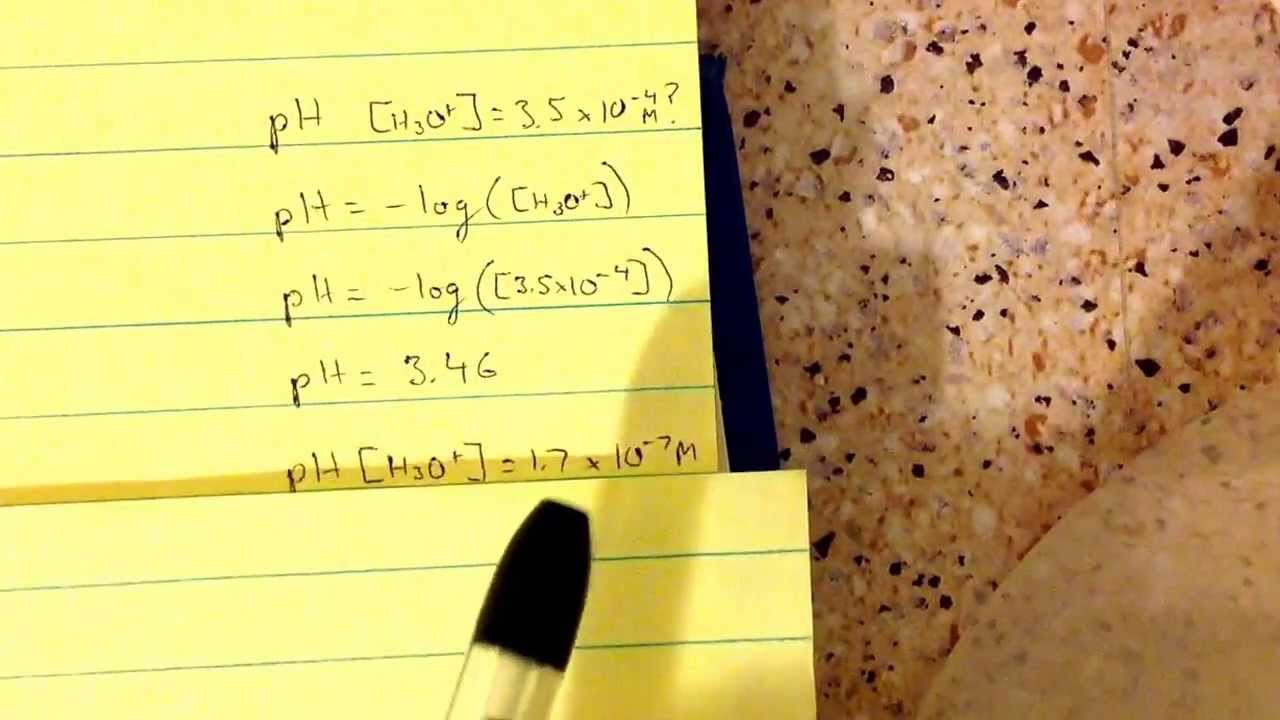 pH [H₃O⁺] = 3.5 × 10⁻⁴ M?
pH = -log([H₃O⁺])
pH = -log([3.5×10⁻⁴])
pH = 3.46
pH [H₃O⁺] = 1.7 × 10⁻⁷ M